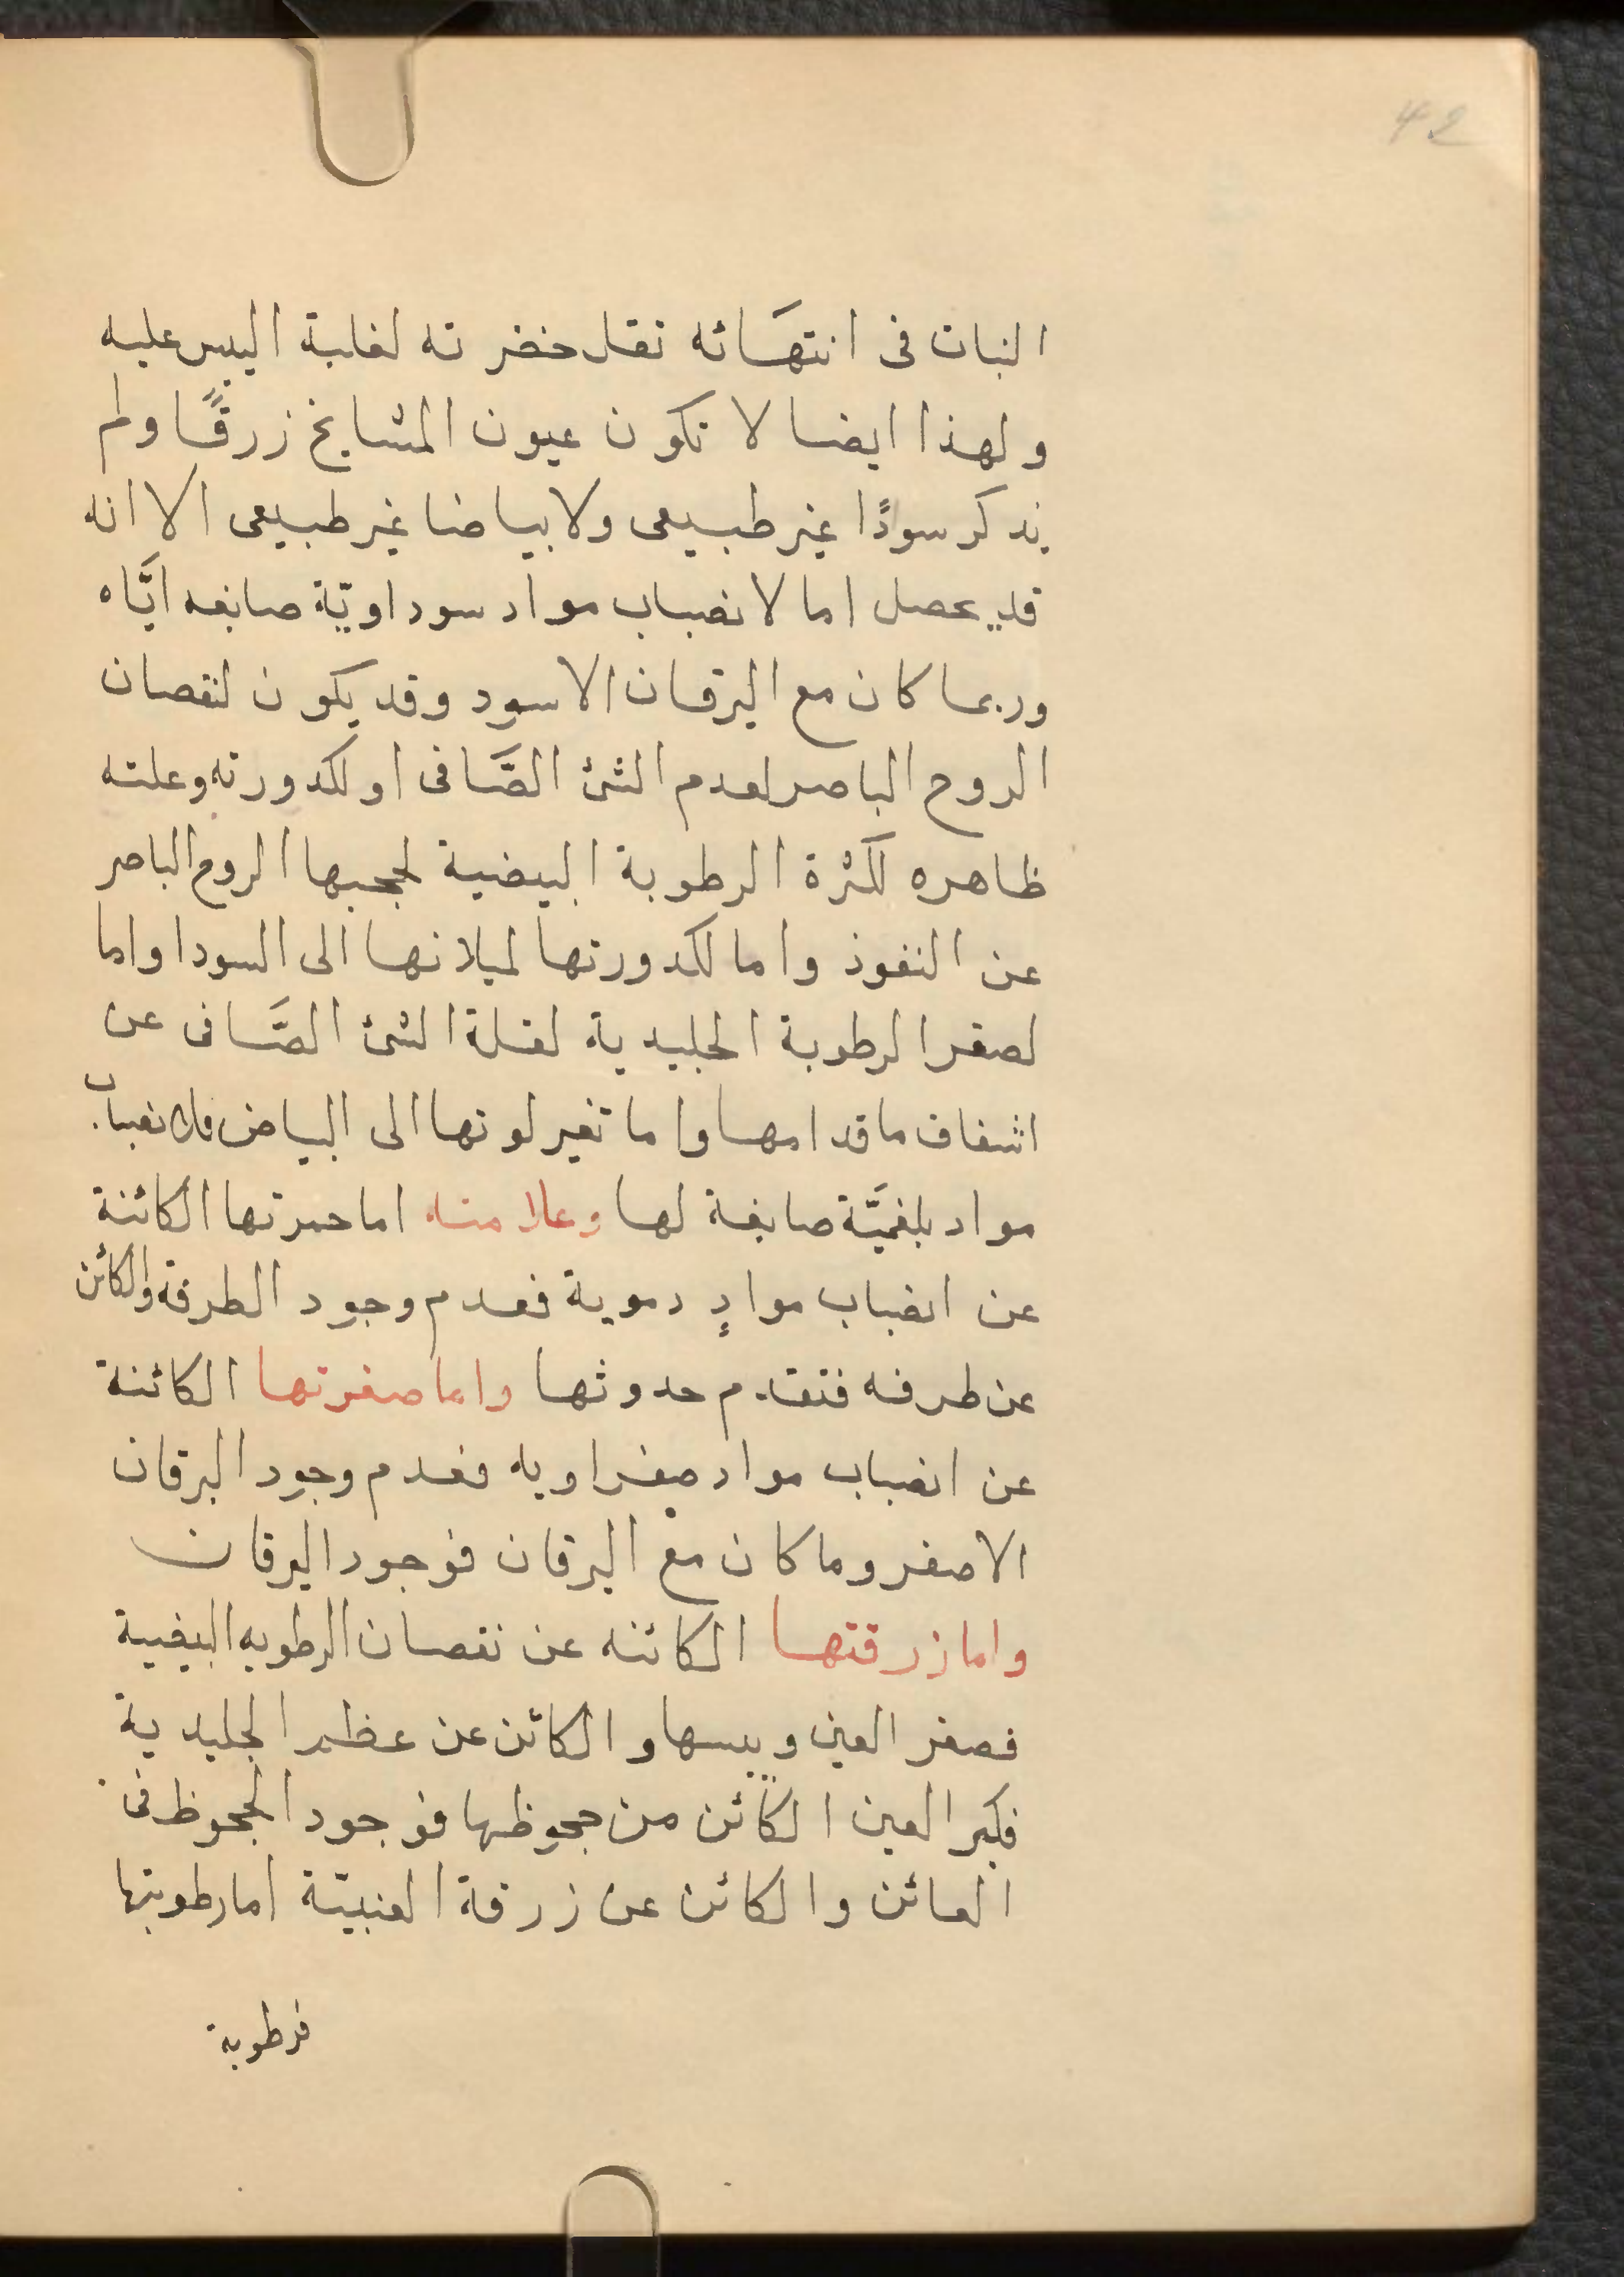 42
النبات فى انتهَائه تقل خضرته لغلبة اليبس عليه
ولهذا ايضا لا تكون عيون المشايخ زرقًا ولم
يذكر سودًا غير طبيعى ولا بياضا غير طبيعى الا انه
قد يحصل اما لانصباب مواد سوداويّة صابغه ايَّاه
وربما كان مع اليرقان الاسود وقد يكون لنقصان
الروح الباصر لعدم الشئ الصَّافى او لكدورته وعلته
ظاهره لكثرة الرطوبة البيضية لحجبها الروح الباصر
عن النفوذ واما لكدورتها لميلانها الى السودا واما
لصغر الرطوبة الجليدية لقلة الشئ الصَّافى عن
اشفاف ما قدامها واما تغير لونها الى البياض فلانصباب
مواد بلغميَّة صابغة لها وعلامته اما حمرتها الكائنة
عن انصباب موادٍ دموية فعدم وجود الطرفة والكائن
عن طرفه فتقدم حدوثها واما صفرتها الكائنة
عن انصباب مواد صفراويه فعدم وجود اليرقان
الاصفر وما كان مع اليرقان فوجود اليرقان
واما زرقتها الكائنه عن نقصان الرطوبه البيضية
فصغر العين ويبسها والكائن عن عظم الجليدية
فكبر العين الكائن من جحوظها فوجود الجحوظ فى
العائن والكائن عن زرقة العنبيّة اما رطوبتها
فرطوبة